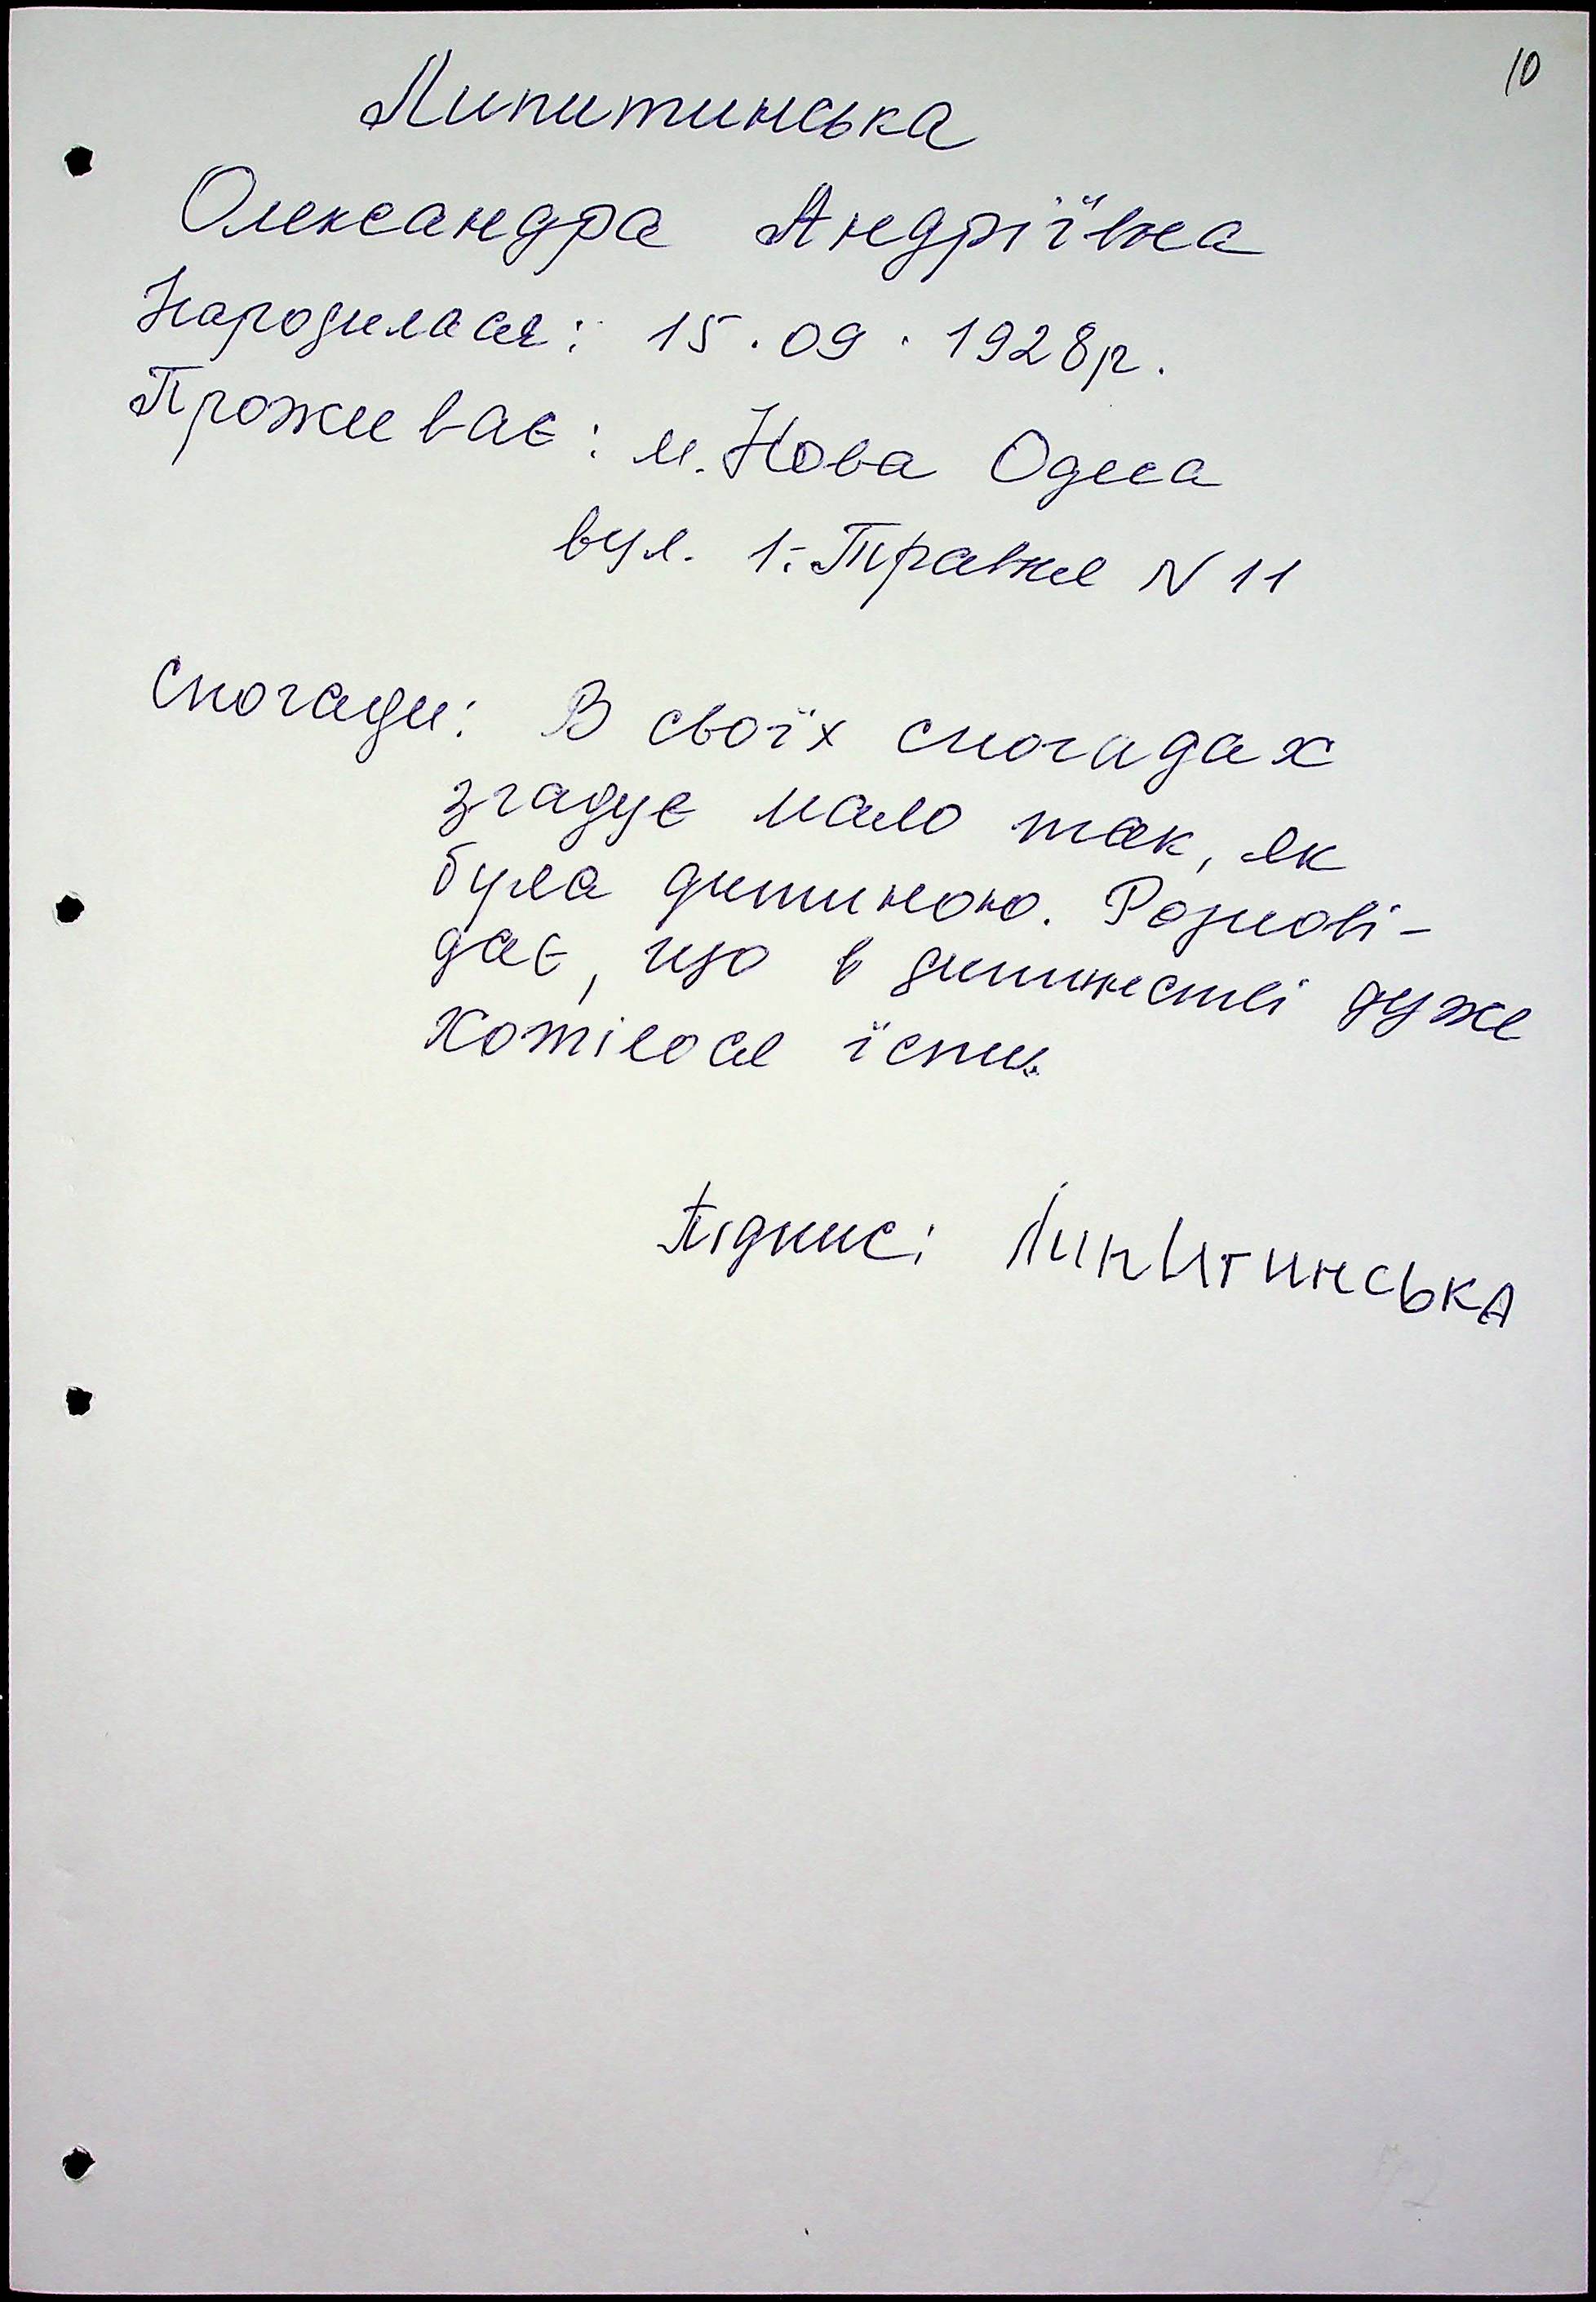 10
Липитинська
Олександра Андріївна
Народилася: 15.09.1928р.
Проживає: м. Нова Одеса
вул. 1-Травня N 11
Спогади: В своїх спогадах
згадує мало так, як
була дитиною. Розпові-
дає, що в дитинстві дуже
хотілося їсти.
Підпис: Липитинська